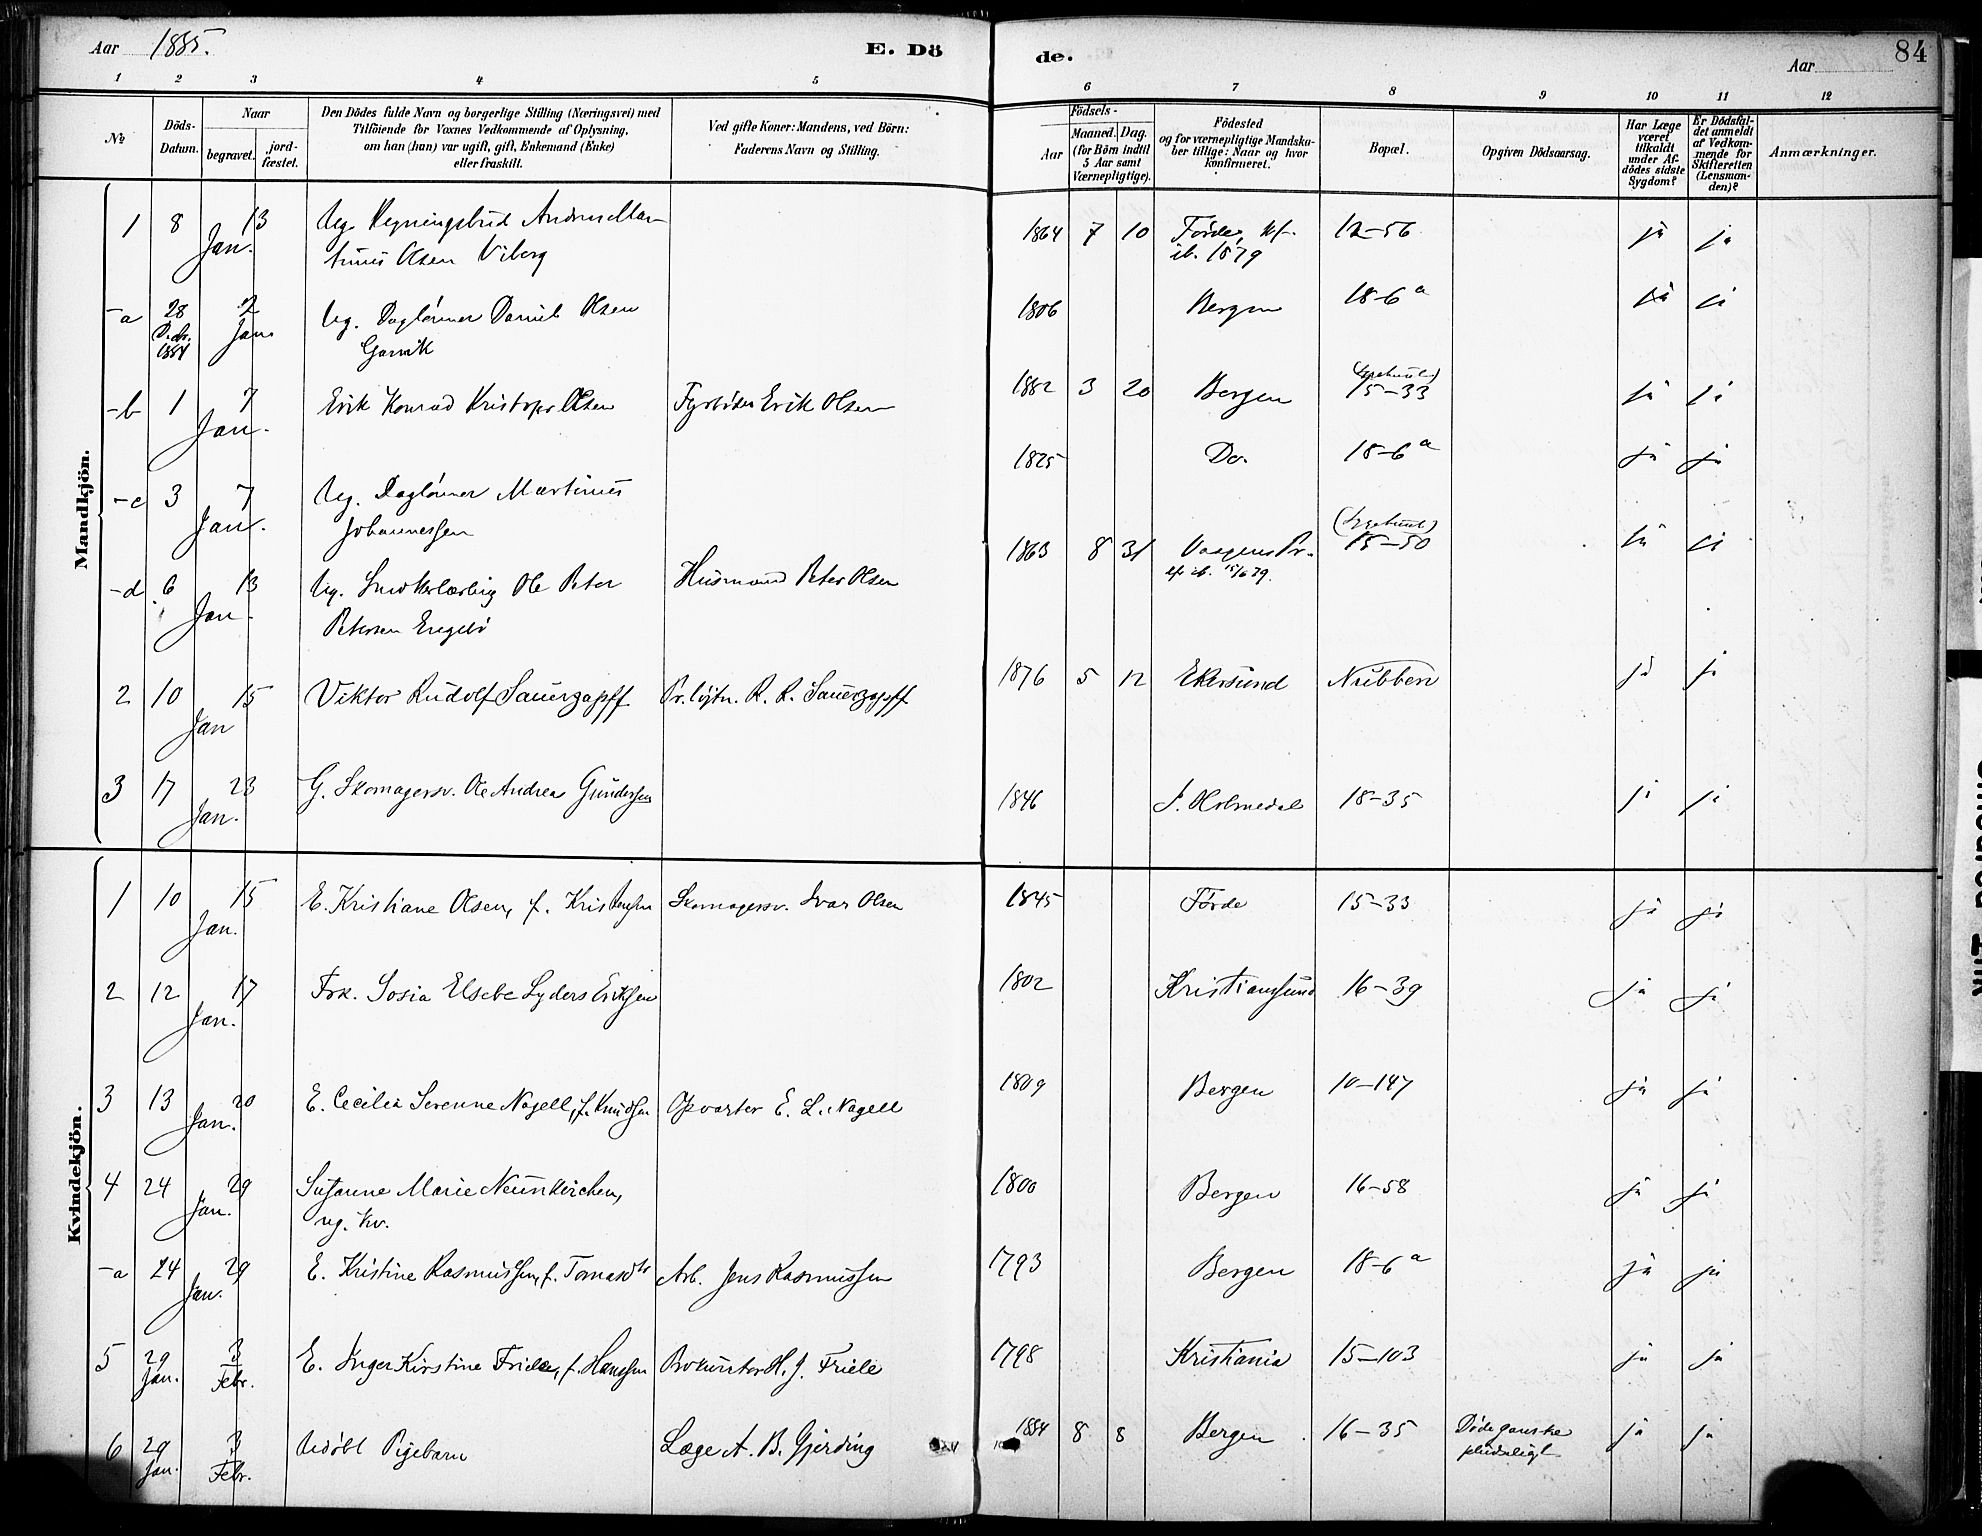 Aar 1885.
E. Dö
de.
Aar
84
1 2 3 4 5
6 7 8 9 10 11 12
№
Döds-
Datum.
Naar
begravet.
jord-
fæstet.
Den Dödes fulde Navn og borgerlige Stilling (Næringsvei) med
Tilföiende for Voxnes Vedkommende af Oplysning,
om han (hun) var ugift, gift, Enkemand (Enke)
eller fraskilt.
Ved gifte Koner: Mandens, ved Börn:
Faderens Navn og Stilling.
Födsels-
Aar
Maaned. Dag.
(for Börn indtil
5 Aar samt
Værnepligtige).
Födested
og for værnepligtige Mandska-
ber tillige: Naar og hvor
konfirmeret.
Bopæl.
Opgiven Dödsaarsag.
Har Læge
været
tilkaldt
under Af-
dödes sidste
Sygdom?
Er Dödsfal-
det anmeldt
af Vedkom-
mende for
Skifteretten
(Lensman-
den)?
Anmærkninger.
Mandkjön.
1 8 13 Ug. Regningsbud Andreas Mar- 1864 7 10 Förde, kf. 12-56 ja ja
Jan. tinus Olsen Viberg ib. 1879
-a 28 2 Ug. Daglönner Daniel Olsen 1806 Bergen 18-6a ja ja
Dcbr. Jan. Garvik
1884
-b 1 7 Erik Konrad Kristofer Olsen Fyrböter Erik Olsen 1882 3 20 Bergen 15-33 ja ja
Jan.
-c 3 7 Ug. Daglönner Martinus 1825 Do. 18-6a ja ja
Jan. Johannessen
-d 6 13 Ug. Snedkerlærling Ole Peter Husmand Peter Olsen 1863 8 31 15-50 ja ja
Jan. Petersen Engebö ib. 15/6 79.
2 10 15 Viktor Rudolf Sauerzapff Pr. löjtn. R. R. Sauerzapff 1876 5 12 Ekersund Nubben ja ja
Jan
3 17 23 G. Skomagersv. Ole Andrea Gundersen 1846 I. Holmedal 18-35 ja ja
Jan.
Kvindekjön.
1 10 15 E. Kristiane Olsen, f. Kristensen Skomagersv. Ivar Olsen 1845 Förde 15-33 ja ja
Jan.
2 12 17 Frk. Sosia Elsebe Lyders Eriksen 1802 Kristiansund 16-39 ja ja
Jan.
3 13 20 E. Cecilia Serenne Nagell, f. Knudsen Opvarter E. L. Nagell 1809 Bergen 10-147 ja ja
Jan.
4 24 29 Susanne Marie Neunkirchen, 1800 Bergen 16-58 ja ja
Jan. ug. kv.
-a 24 29 E. Kristine Rasmussen, f. Tomasdtr Arb. Jens Rasmussen 1793 Bergen 18-6a ja ja
Jan.
5 29 3 E. Inger Kirstine Friele, f. Hanssen Prokurator H. J. Friele 1798 Kristiania 15-103 ja ja
Jan. Febr.
6 29 3 Udöbt Pigebarn Læge A. B. Gjerding 1884 8 8 Bergen 16-35 Döde ganske ja ja
Jan. Febr. pludseligt